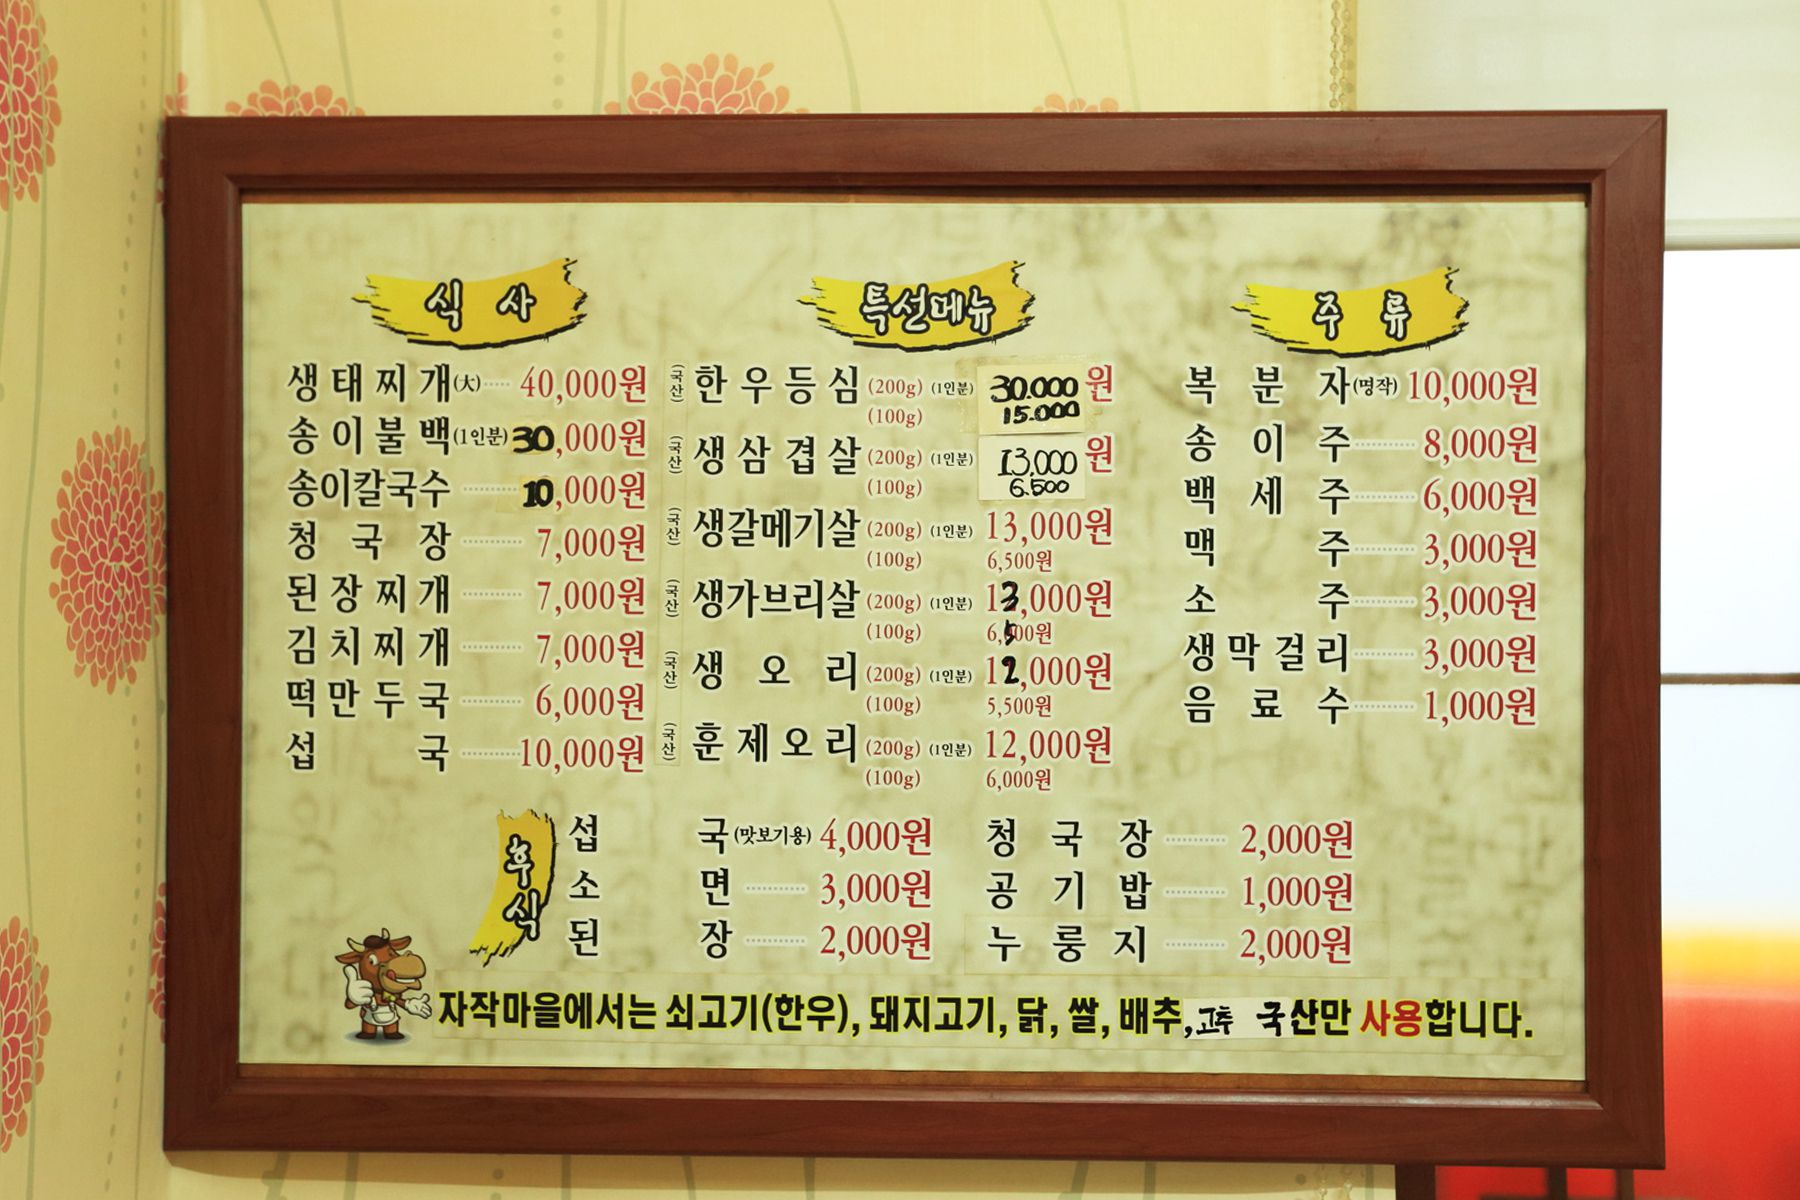 식 사
생태찌개(大) 40,000원
송이불백(1인분) 30,000원
송이칼국수 10,000원
청국장 7,000원
된장찌개 7,000원
김치찌개 7,000원
떡만두국 6,000원
섭국 10,000원
특선메뉴
(국산) 한우등심 (200g) (1인분) 30.000원
(100g) 15.000
(국산) 생삼겹살 (200g) (1인분) 13,000원
(100g) 6.500
(국산) 생갈메기살 (200g) (1인분) 13,000원
(100g) 6,500원
(국산) 생가브리살 (200g) (1인분) 13,000원
(100g) 6,500원
(국산) 생오리 (200g) (1인분) 12,000원
(100g) 5,500원
(국산) 훈제오리 (200g) (1인분) 12,000원
(100g) 6,000원
주 류
복분자(명작) 10,000원
송이주 8,000원
백세주 6,000원
맥주 3,000원
소주 3,000원
생막걸리 3,000원
음료수 1,000원
후식
섭국(맛보기용) 4,000원
소면 3,000원
된장 2,000원
청국장 2,000원
공기밥 1,000원
누룽지 2,000원
자작마을에서는 쇠고기(한우), 돼지고기, 닭, 쌀, 배추,고추 국산만 사용합니다.